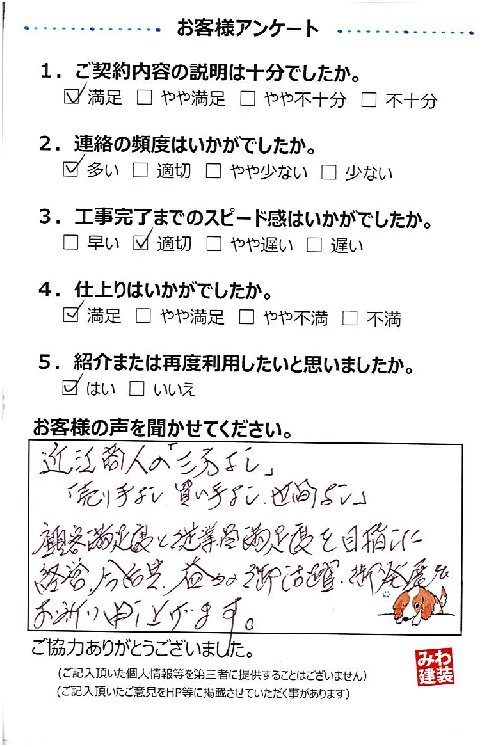 お客様アンケート
1．ご契約内容の説明は十分でしたか。
☑ 満足 □ やや満足 □ やや不十分 □ 不十分
2．連絡の頻度はいかがでしたか。
☑ 多い □ 適切 □ やや少ない □ 少ない
3．工事完了までのスピード感はいかがでしたか。
□ 早い ☑ 適切 □ やや遅い □ 遅い
4．仕上りはいかがでしたか。
☑ 満足 □ やや満足 □ やや不満 □ 不満
5．紹介または再度利用したいと思いましたか。
☑ はい □ いいえ
お客様の声を聞かせてください。
近江商人の「三方よし」
「売り手よし 買い手よし 世間よし」
顧客満足度と従業員満足度を目指した
経営、今後共、益々の御活躍・御発展を
お祈り申し上げます。
ご協力ありがとうございました。
(ご記入頂いた個人情報等を第三者に提供することはございません)
(ご記入頂いたご意見をHP等に掲載させていただく事があります)
みわ
建装